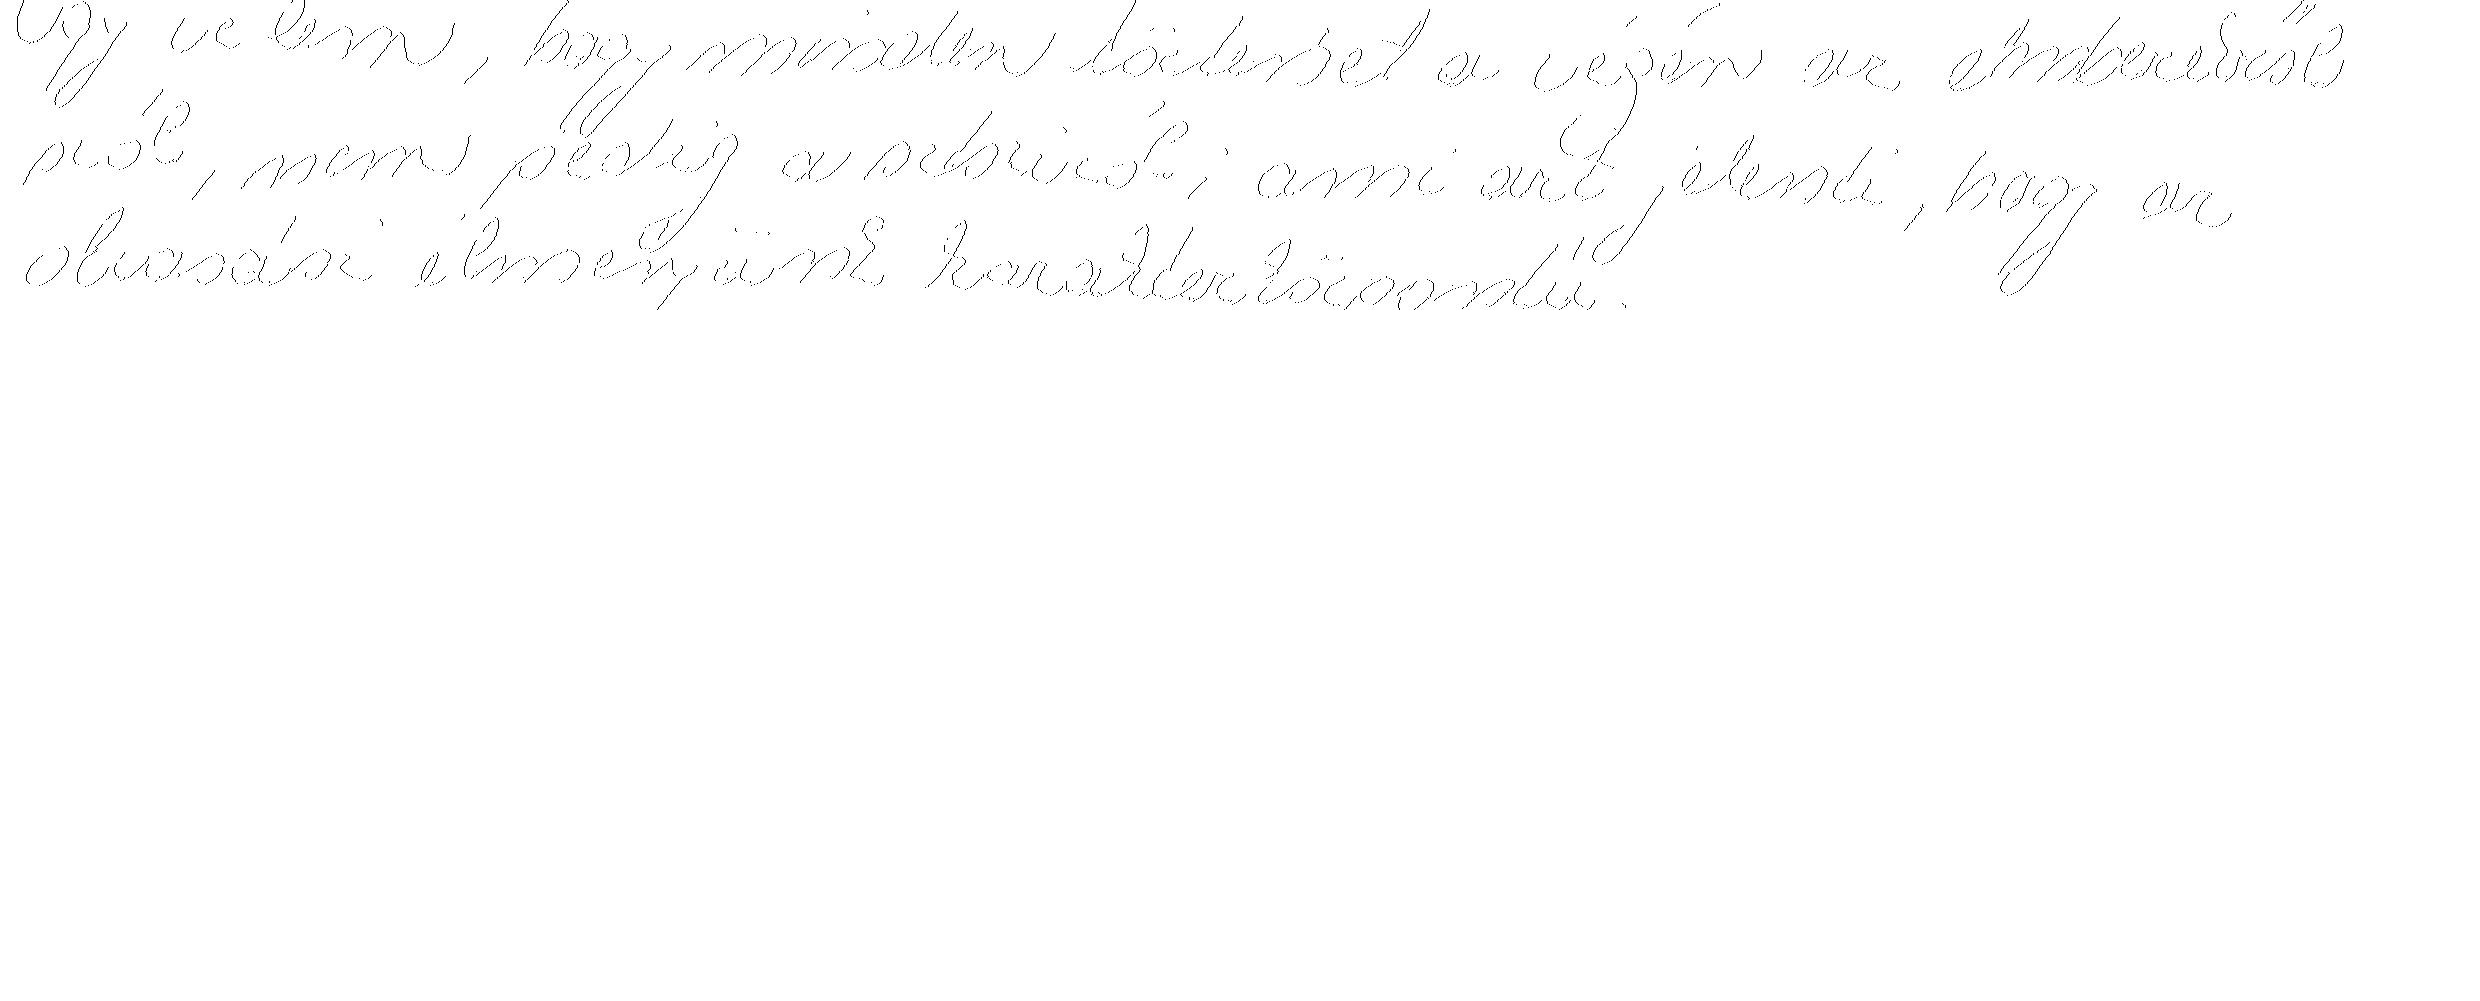 Úgy vélem, hogy minden történet a végén az emberekről
szól, nem pedig a sztoriról, ami azt jelenti, hogy az
olvasási élményünk karakterközpontú.